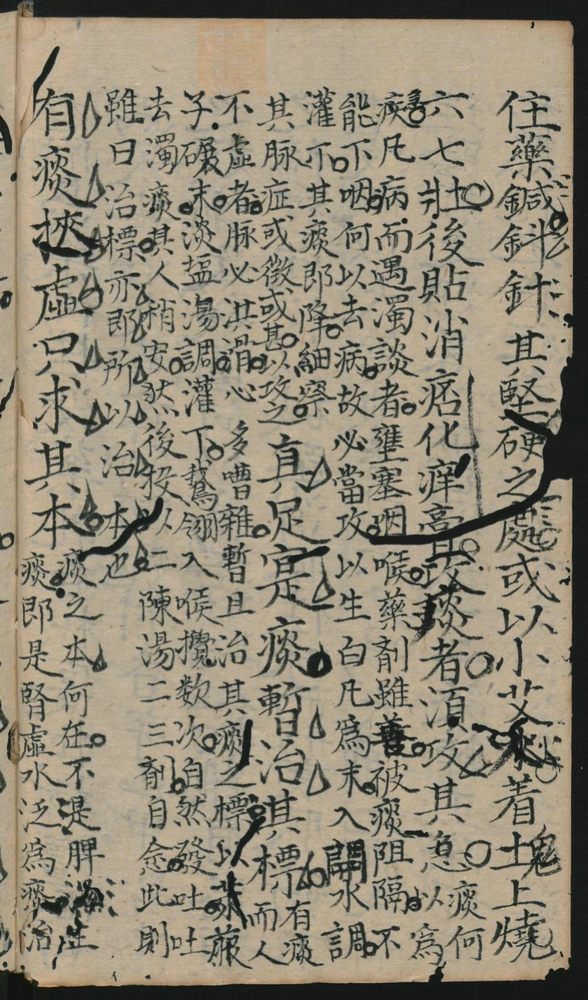 住藥鍼斜針其堅硬之處或以小艾火着塊上燒
六七壯後貼消痞化痒膏攻痰者須攻其急痰何以爲
急凡病而遇濁談者壅塞咽喉藥劑雖善被痰阻隔不
能下咽何以去病故必當攻以生白凡爲末入開水調
灌下其痰即降細察
其脉症或微或甚以攻之真足寔痰暫治其標有痰而人
不虛者脉必洪滑心多嘈雜暫且治其痰之標以萊菔
子碾末淡盐湯調灌下鵞翎入喉攪数次自然發吐吐
去濁痰其人稍安然後投以二陳湯二三劑自愈此則
雖曰治標亦即所以治本也
有痰挾虛只求其本痰之本何在不是脾
痰即是腎虛水泛爲痰治